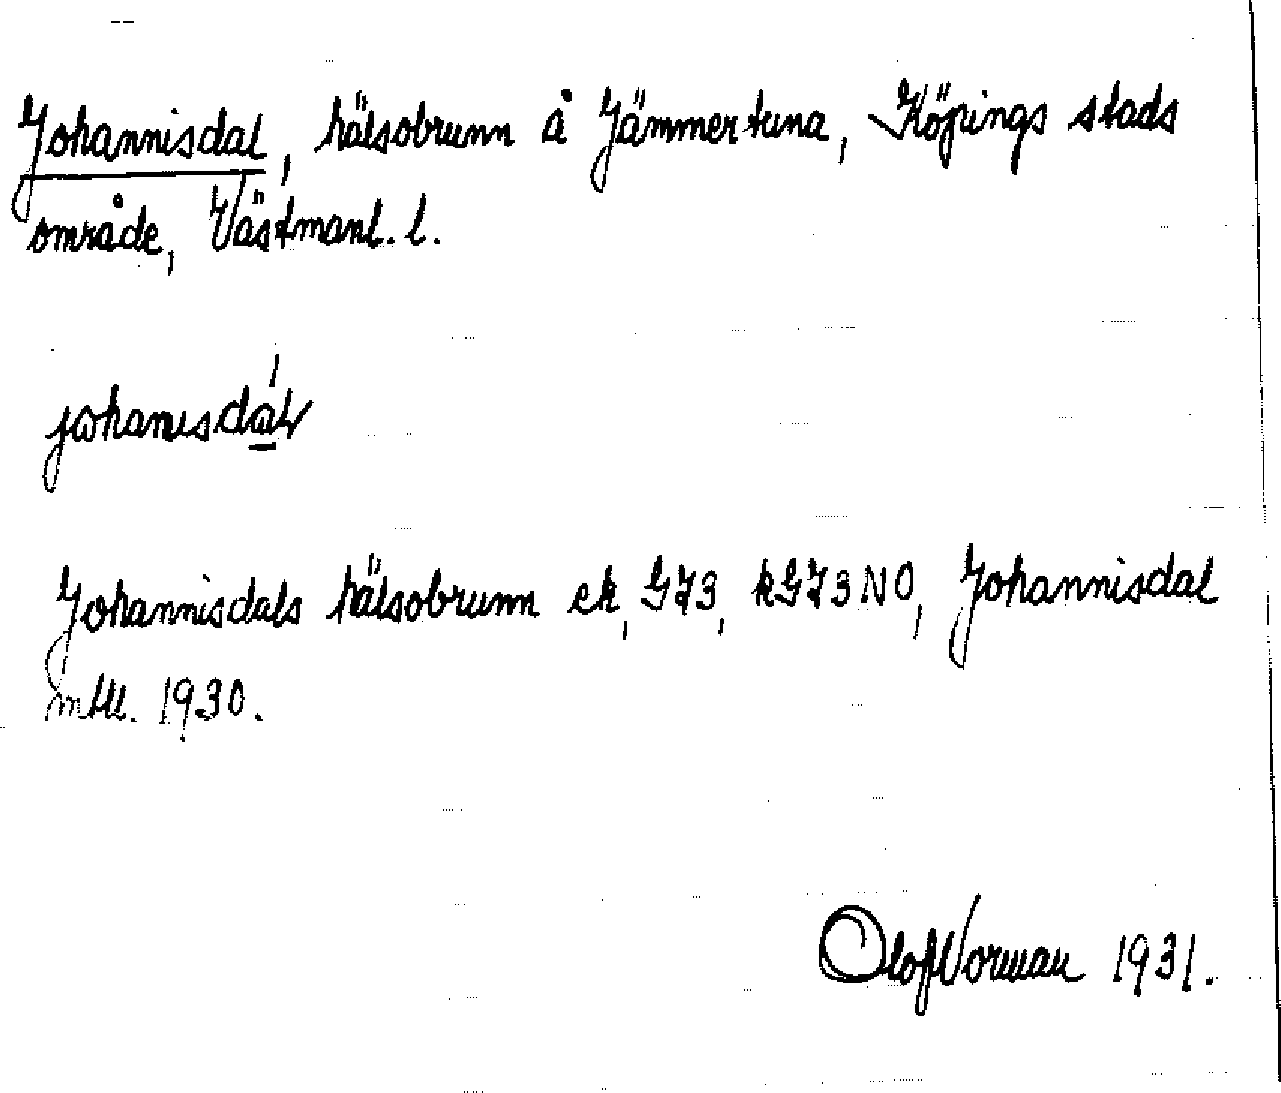 Johannisdal, hälsobrunn å Jämmertuna, Köpings stads
område, Västmanl. l.
Johannisdals hälsobrunn ek, GJ3, kGJ3NO, Johannisdal
mtll. 1930.
Olof Norman 1931.